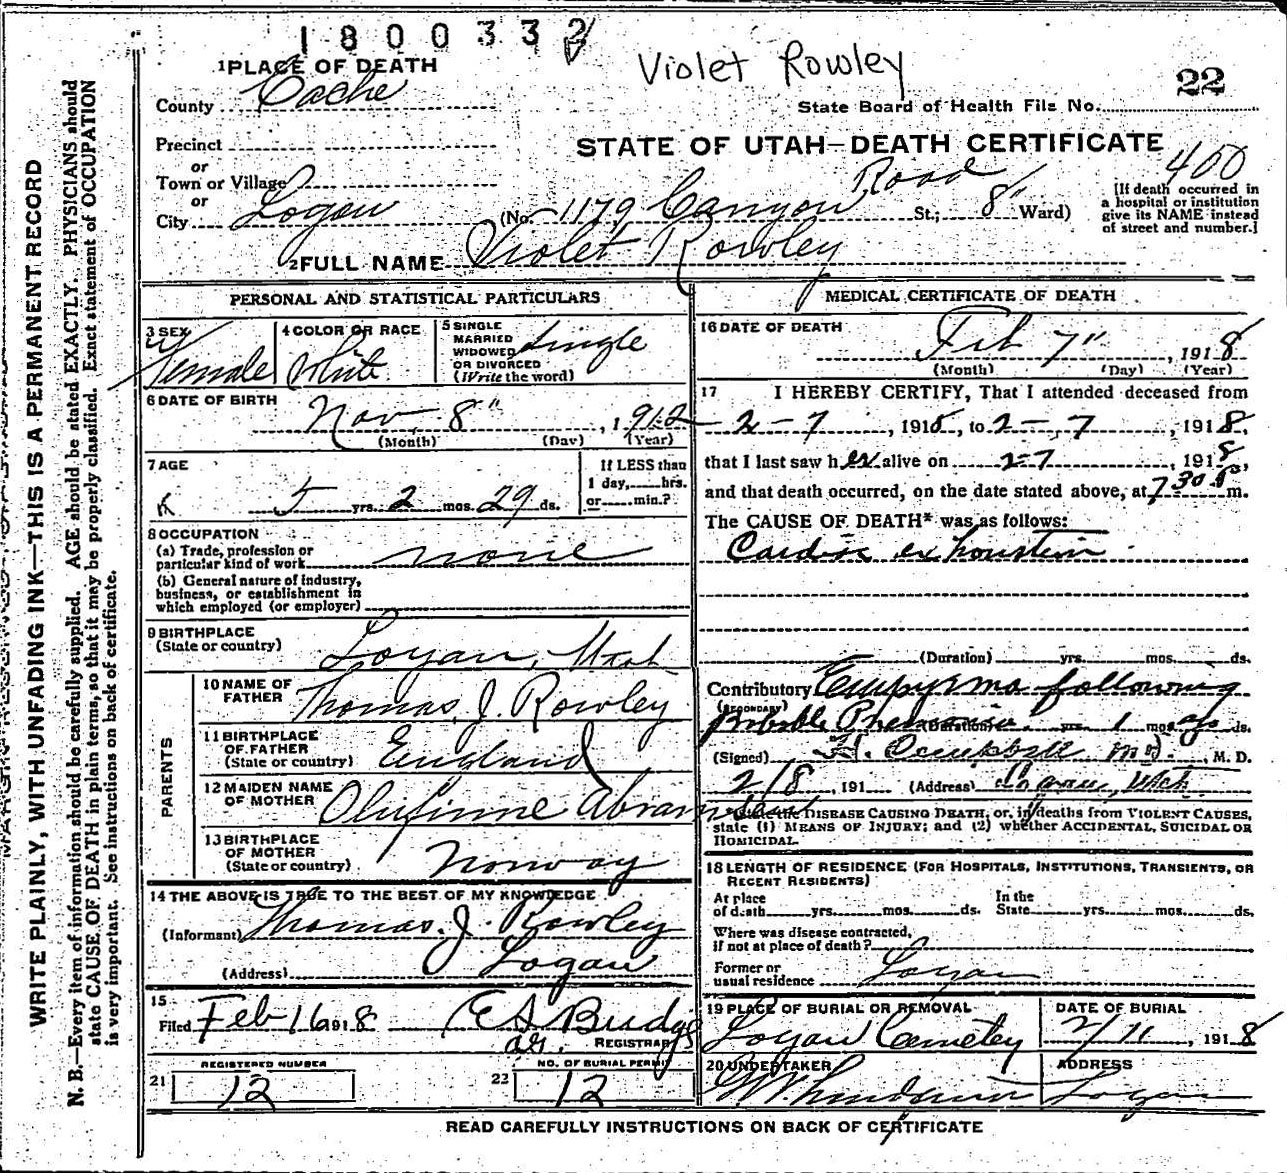 1800332
Violet Rowley
22
1 PLACE OF DEATH
County Cache
State Board of Health File No.
Precinct
STATE OF UTAH—DEATH CERTIFICATE
or
Town or Village
400
or
City Logan (No. 1179 Canyon Road St.; 8" Ward)
[If death occurred in
a hospital or institution
give its NAME instead
of street and number.]
2 FULL NAME Violet Rowley
PERSONAL AND STATISTICAL PARTICULARS
3 SEX Female
4 COLOR OR RACE White
5 SINGLE
MARRIED
WIDOWED
OR DIVORCED
(Write the word) Single
6 DATE OF BIRTH
Nov. 8" , 1912
(Month) (Day) (Year)
7 AGE
5 yrs. 2 mos. 29 ds.
If LESS than
1 day, hrs.
or min.?
8 OCCUPATION
(a) Trade, profession or
particular kind of work none
(b) General nature of industry,
business, or establishment in
which employed (or employer)
9 BIRTHPLACE
(State or country) Logan, Utah
PARENTS
10 NAME OF
FATHER Thomas J. Rowley
11 BIRTHPLACE
OF FATHER
(State or country) England
12 MAIDEN NAME
OF MOTHER
13 BIRTHPLACE
OF MOTHER
(State or country) Norway
14 THE ABOVE IS TRUE TO THE BEST OF MY KNOWLEDGE
(Informant) Thomas. J. Rowley
(Address) Logan
15
Filed Feb 16 1918 E S Budge
REGISTRAR
REGISTERED NUMBER
21 12
NO. OF BURIAL PERMIT
22 12
MEDICAL CERTIFICATE OF DEATH
16 DATE OF DEATH
Feb 7" , 1918
(Month) (Day) (Year)
17 I HEREBY CERTIFY, That I attended deceased from
2-7 , 1918, to 2-7 , 1918,
that I last saw her alive on 2-7 , 1918,
and that death occurred, on the date stated above, at 7 30 m.
The CAUSE OF DEATH* was as follows:
Cardiac exhaustion
(Duration) yrs. mos. ds.
Contributory Empyema following
(SECONDARY)
Pneumonia (Duration) yrs. 1 mos. ago ds.
(Signed) M.D., M. D.
2/8, 191 (Address) Logan, Utah
*State the DISEASE CAUSING DEATH, or, in deaths from VIOLENT CAUSES,
state (1) MEANS OF INJURY; and (2) whether ACCIDENTAL, SUICIDAL OR
HOMICIDAL.
18 LENGTH OF RESIDENCE (FOR HOSPITALS, INSTITUTIONS, TRANSIENTS, OR
RECENT RESIDENTS)
At place
of death yrs. mos. ds.
In the
State yrs. mos. ds.
Where was disease contracted,
if not at place of death?
Former or
usual residence Logan
19 PLACE OF BURIAL OR REMOVAL
Logan Cemetey
DATE OF BURIAL
2/11, 1918
20 UNDERTAKER
ADDRESS
Logan
READ CAREFULLY INSTRUCTIONS ON BACK OF CERTIFICATE
WRITE PLAINLY, WITH UNFADING INK—THIS IS A PERMANENT RECORD
N. B.—Every item of information should be carefully supplied. AGE should be stated EXACTLY. PHYSICIANS should
state CAUSE OF DEATH in plain terms, so that it may be properly classified. Exact statement of OCCUPATION
is very important. See instructions on back of certificate.